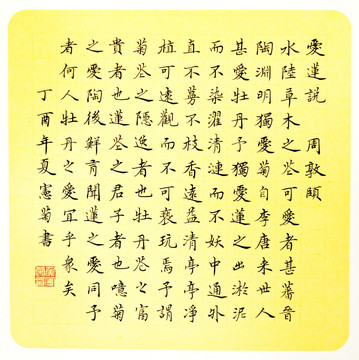 愛蓮說 周敦頤
水陸草木之花可愛者甚蕃晉
陶淵明獨愛菊自李唐來世人
甚愛牡丹予獨愛蓮之出淤泥
而不染濯清漣而不妖中通外
直不蔓不枝香遠益清亭亭淨
植可遠觀而不可褻玩焉予謂
菊花之隱逸者也牡丹花之富
貴者也蓮花之君子者也噫菊
之愛陶後鮮有聞蓮之愛同予
者何人牡丹之愛宜乎眾矣
丁酉年夏憲菊書